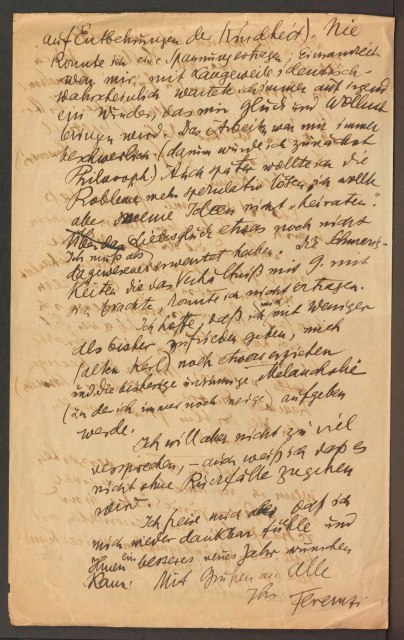 auf Entbehrungen der Kindheit). Nie
konnte ich eine Spannung ertragen; Einsamkeit
war mir mit Langeweile identisch –
wahrscheinlich wartete ich immer auf irgend
ein Wunder, das mir Glück und Wollust
bringen wird. Das Arbeiten war mir immer
beschwerlich (darum wurde ich zunächst
Philosoph) Auch später wollte ich die
Probleme mehr spekulativ lösen, ich wollte
aber meine Ideen nicht „heiraten“.
Ich muß als Liebesglück etwas noch nicht
dagewesenes erwartet haben. Die Schwierig-
keiten die das Verhältniß mit G. mit
sich brachte, konnte ich nicht ertragen.
Ich hoffe, daß ich mich mit weniger
als bisher zufrieden geben, mich
(alten Kerl) noch etwas erziehen
und die bisherige unsinnige Melancholie
(zu der ich immer noch neige) aufgeben
werde.
Ich will aber nicht zu viel
versprechen, – auch weiß ich daß es
nicht ohne Rückfälle zugehen
wird.
Ich freue mich aber daß ich
mich wieder dankbar fühle und
Ihnen ein besseres neues Jahr wünschen
kann. Mit Grüßen an Alle
Ihr Ferenczi